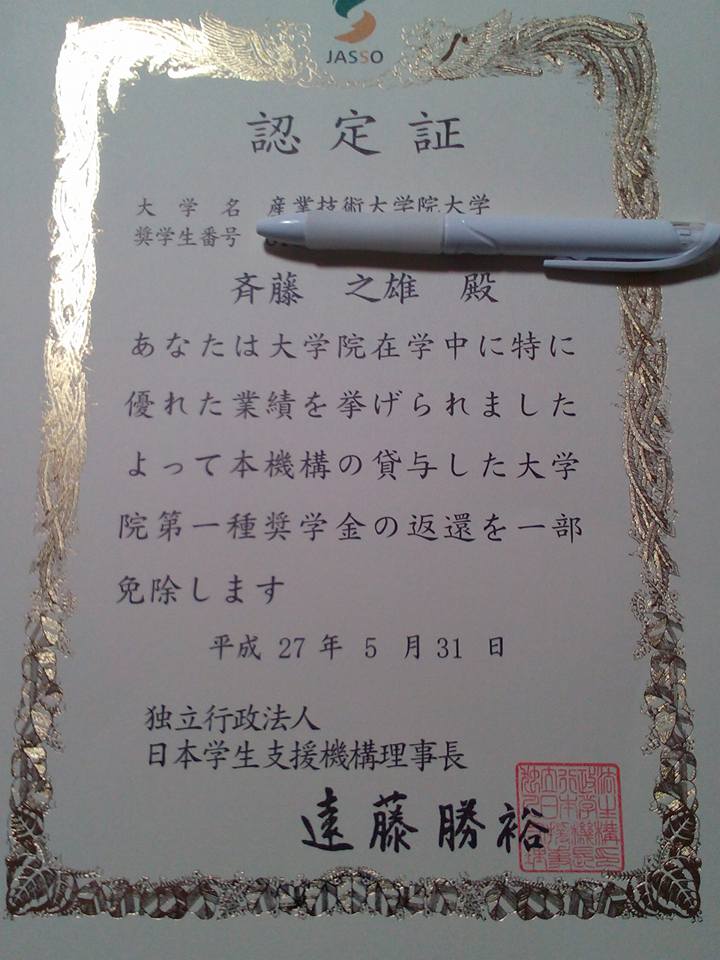 JASSO
認定証
大学名 産業技術大学院大学
奨学生番号
斉藤 之雄 殿
あなたは大学院在学中に特に
優れた業績を挙げられました
よって本機構の貸与した大学
院第一種奨学金の返還を一部
免除します
平成 27 年 5 月 31 日
独立行政法人
日本学生支援機構理事長
遠藤勝裕